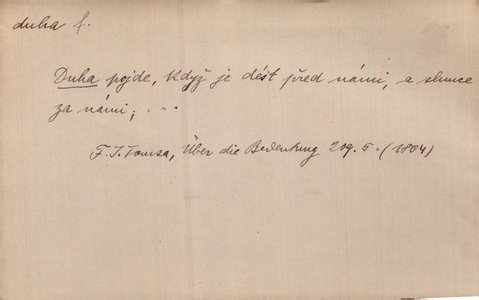 duha f.
Duha pojde, když je déšt před námi, a slunce
za námi; . . .
F. J. Tomsa, Über die Bedeutung 209. (1804)